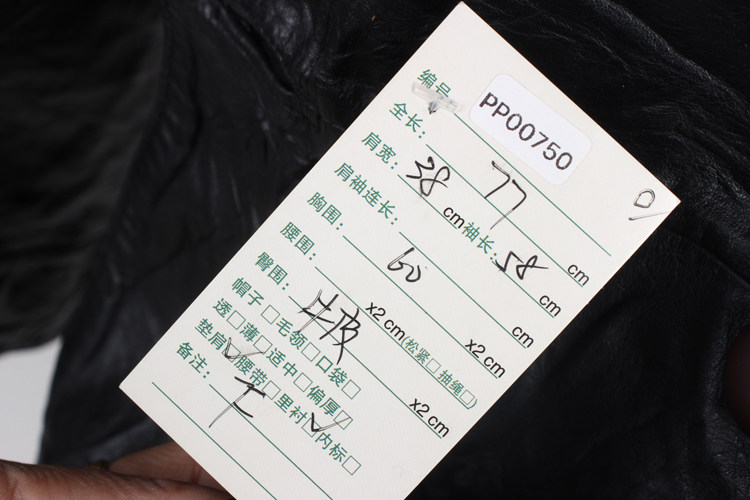 编号 PP00750
全长: 77 cm
肩宽: 38 cm 袖长: 58 cm
肩袖连长: cm
胸围: 60 x2 cm
腰围: x2 cm (松紧□ 抽绳□)
臀围: 牛皮 x2 cm
帽子□ 毛领□ 口袋□
透□ 薄□ 适中□ 偏厚☑
垫肩☑ 腰带□ 里衬☑ 内标□
备注: